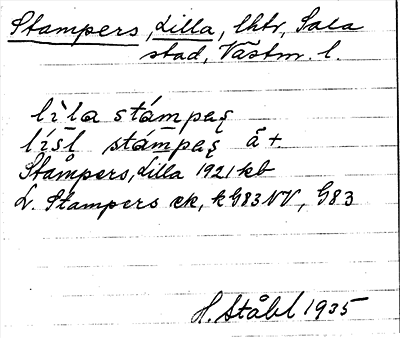 Stampers, Lilla, lhtr, Sala
stad, Västm. l.
lìla stámpaʂ
líśl stámpaʂ ä+
Stampers, Lilla 1921 kb
L. Stampers ek, kG83NV, G83
H. Ståhl 1935